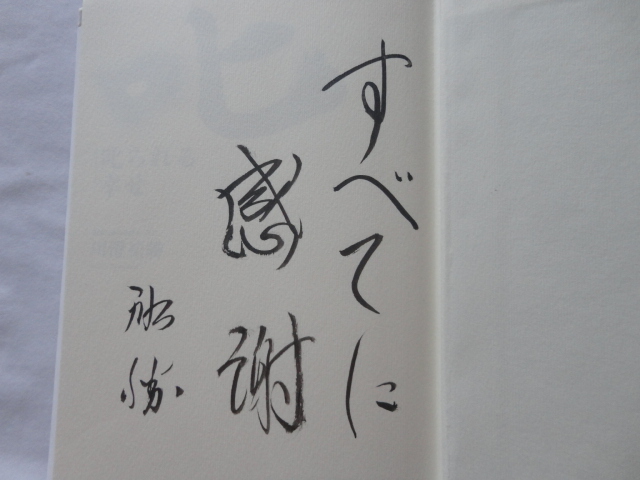 すべてに
感謝